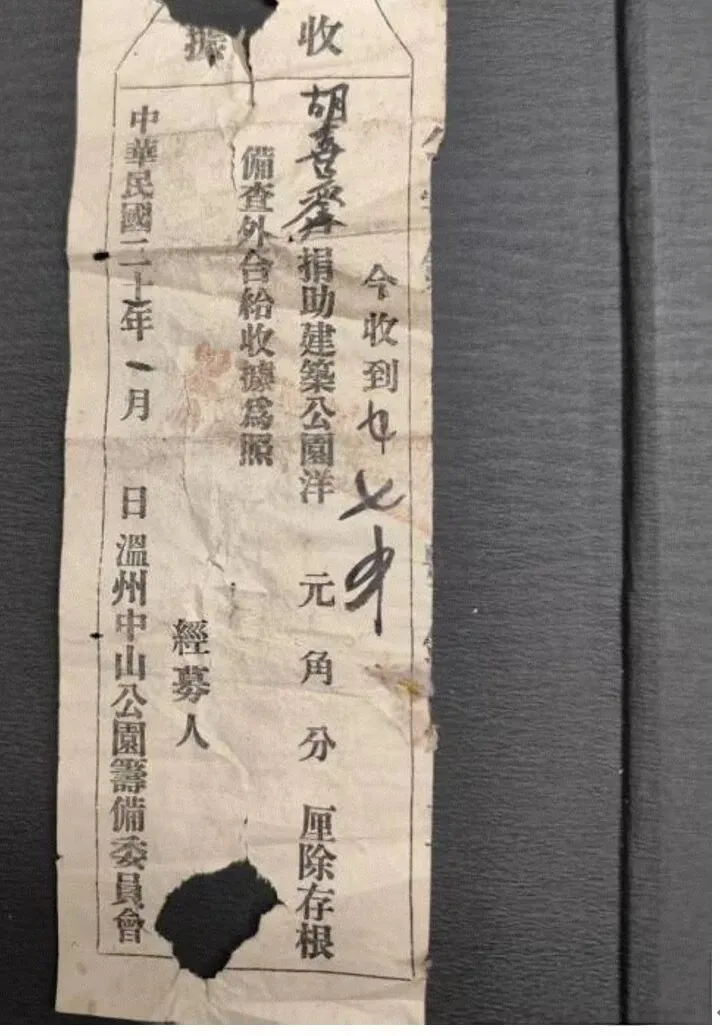 收據
今收到廿七年
胡喜齋捐助建築公園洋 元 角 分 厘除存根
備查外合給收據爲照
經募人
中華民國二十年一月 日溫州中山公園籌備委員會